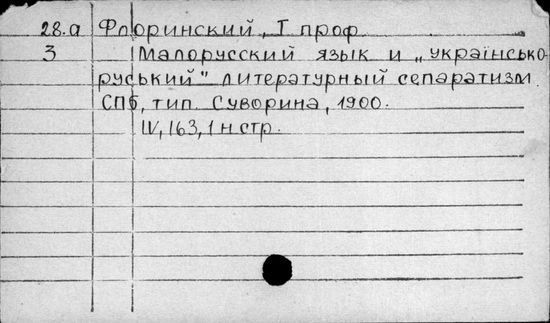 28.а Флоринский, Т проф.
3 Малорусский язык и „українсько-
руський" литературный сепаратизм.
СПб, тип. Суворина, 1900.
IV, 163, 1 н стр.